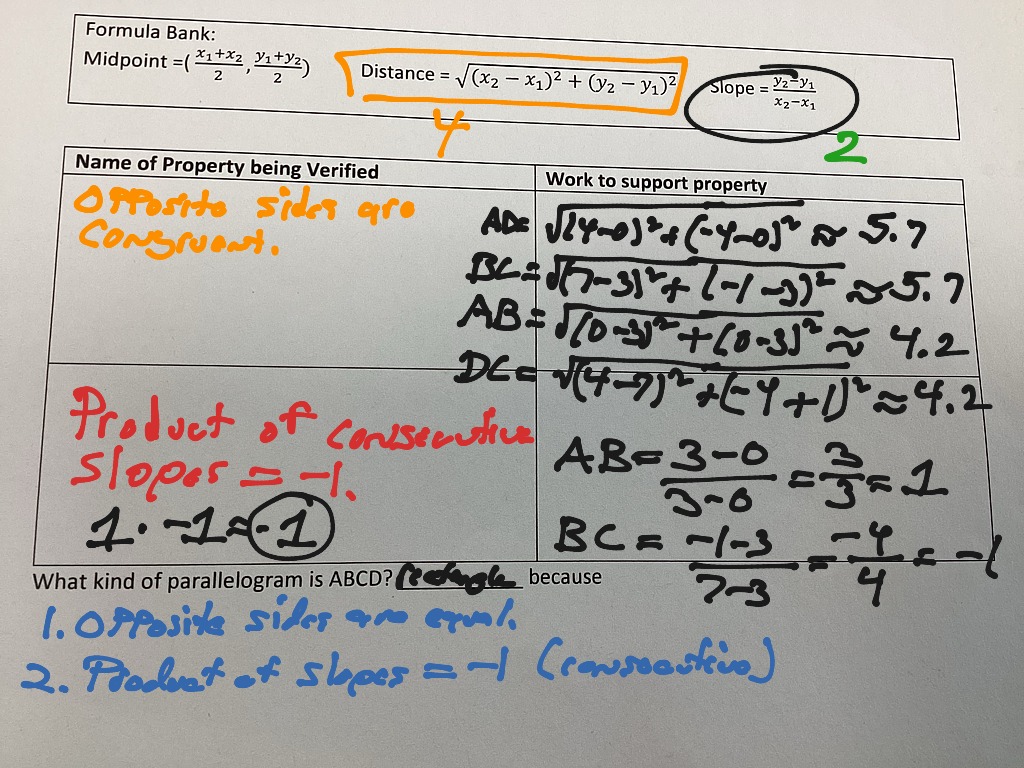 Formula Bank:
Midpoint =( x₁+x₂/2 , y₁+y₂/2 )
Distance = √(x₂ − x₁)² + (y₂ − y₁)²
Slope = y₂−y₁/x₂−x₁
4
2
Name of Property being Verified
Work to support property
Opposite sides are
Congruent.
AD= √(4-0)²+(-4-0)² ≈ 5.7
BC= √(7-3)²+(-1-3)² ≈ 5.7
AB= √(0-3)²+(0-3)² ≈ 4.2
DC= √(4-7)²+(-4+1)² ≈ 4.2
Product of consecutive
slopes = -1.
1 · -1 = -1
AB= 3-0/3-0 = 3/3 = 1
BC= -1-3/7-3 = -4/4 = -1
What kind of parallelogram is ABCD? rectangle because
1. Opposite sides are equal.
2. Product of slopes = -1 (consecutive)